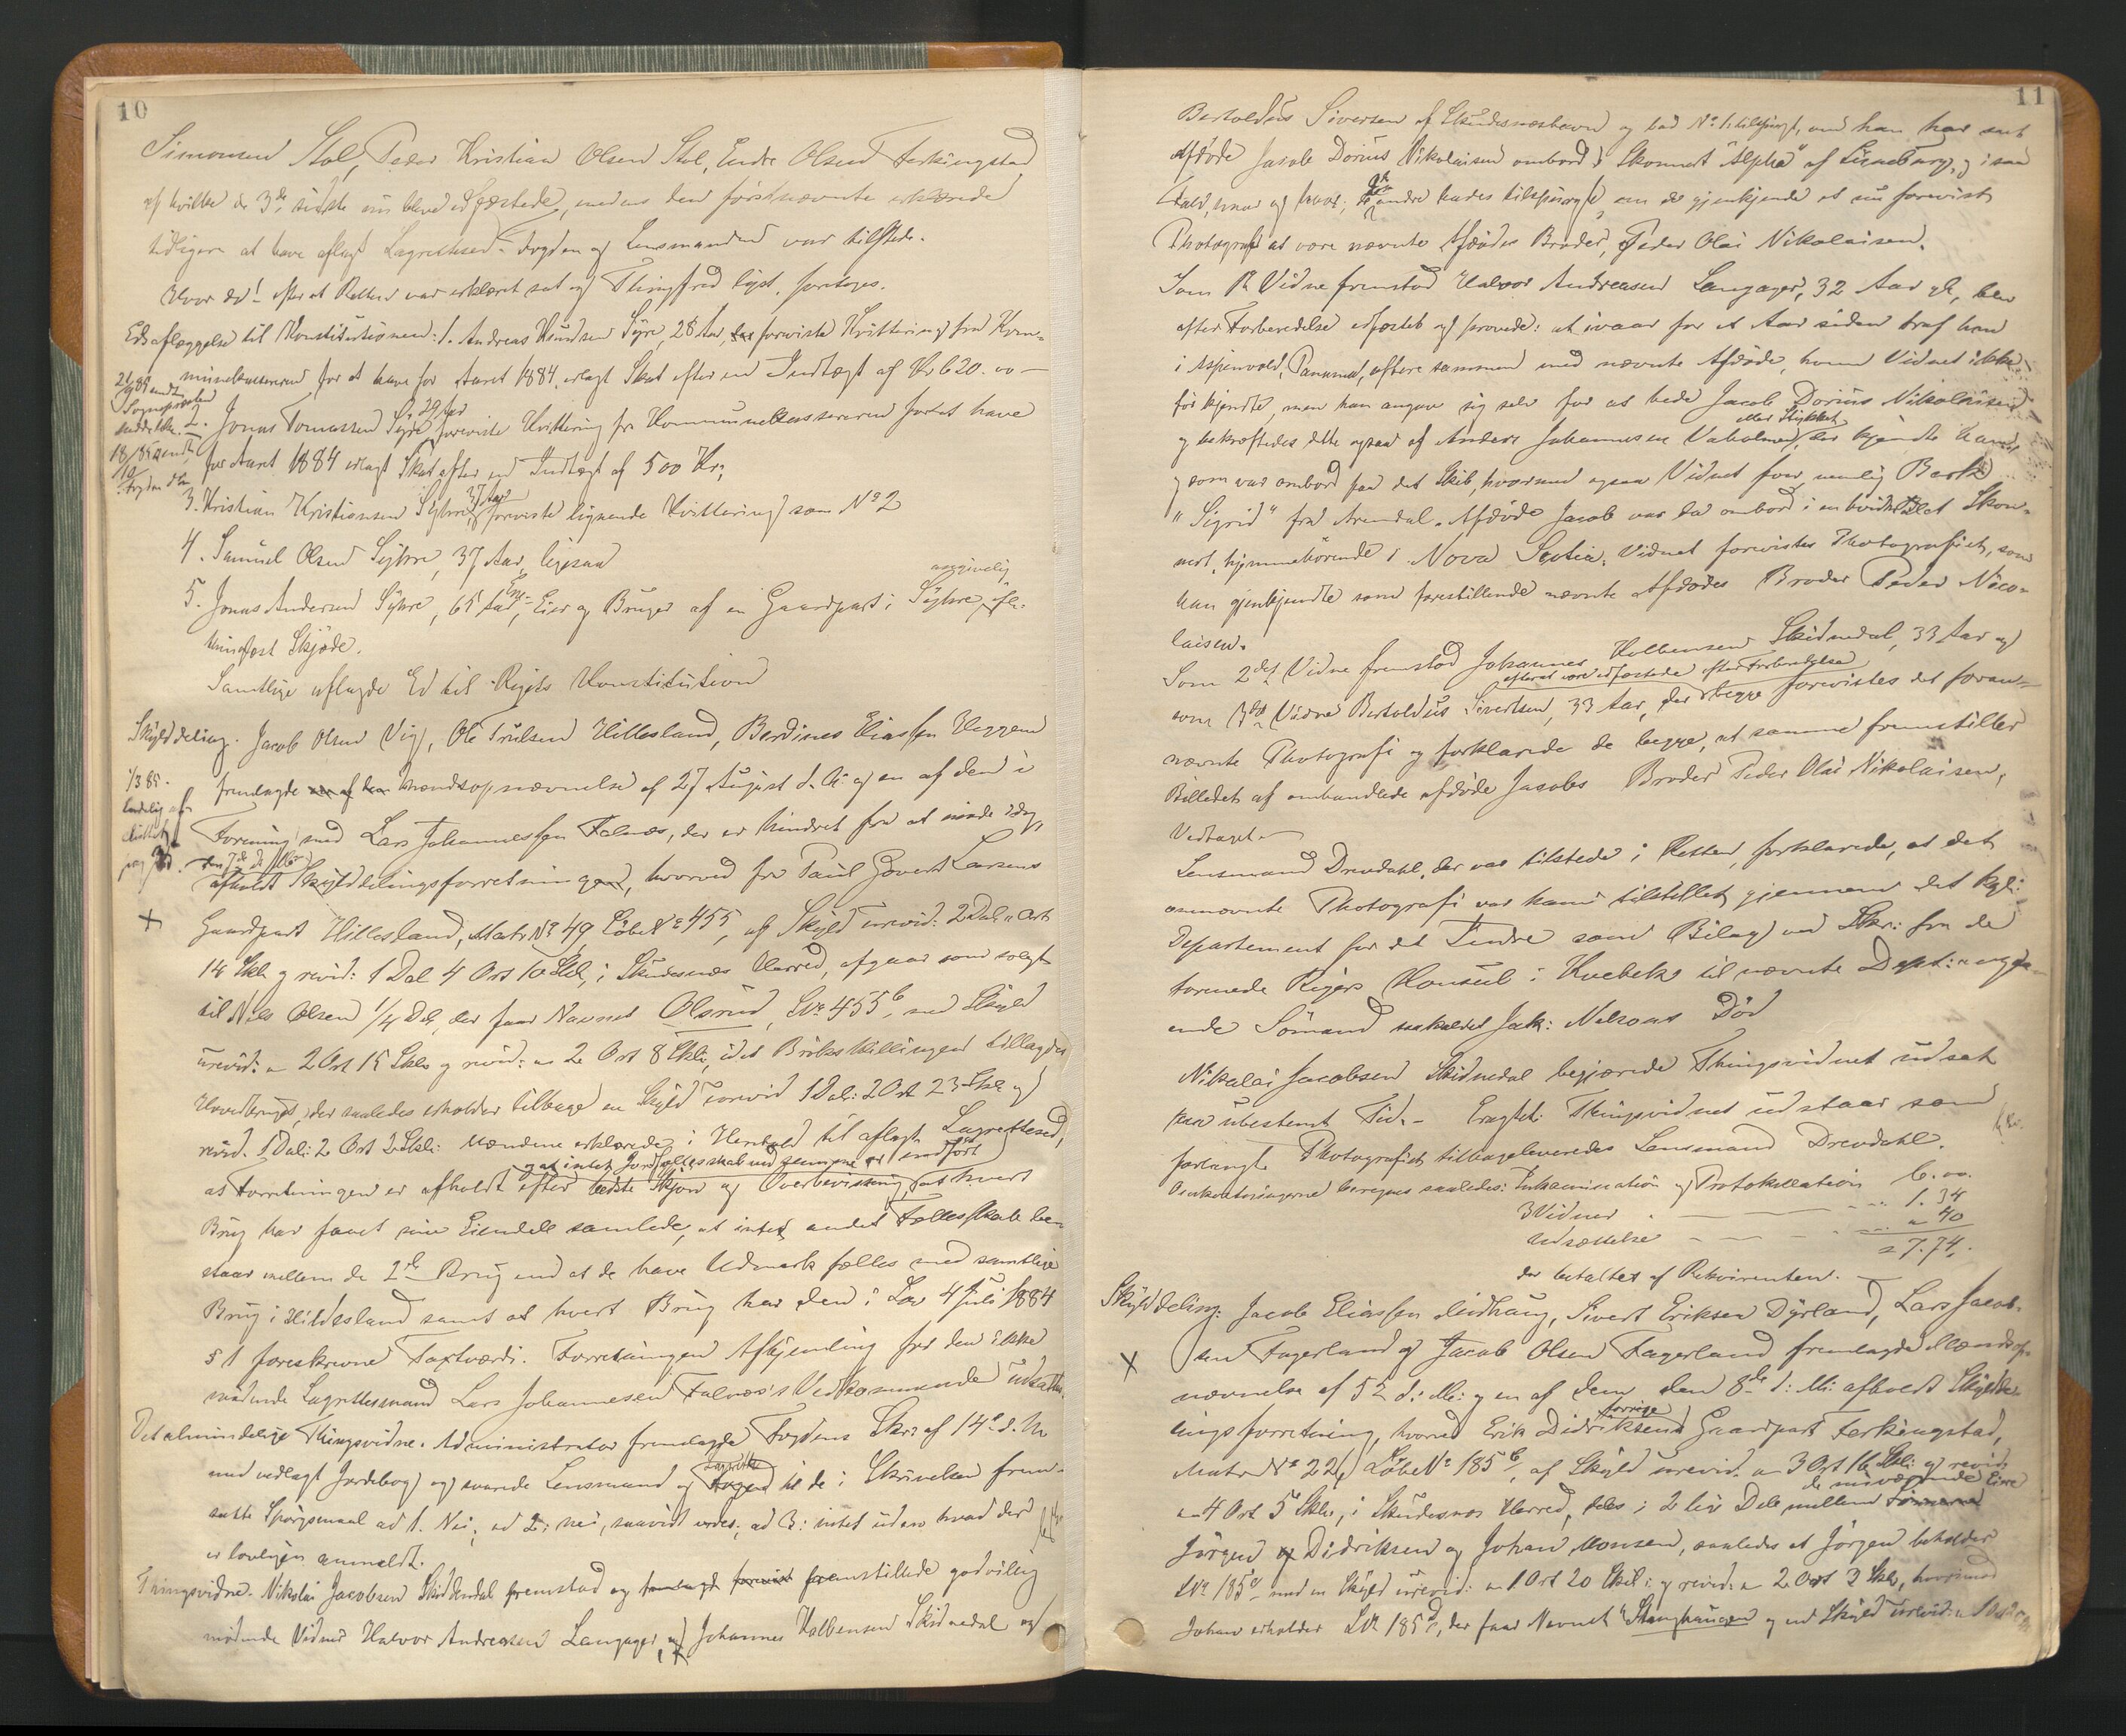 10
Simonsen Stol, Peder Kristian Olsen Stol, Endre Olsen Ferkingstad
af hvilke de 3de sidste nu bleve edfæstede, medens den førstnævnte erklærede
tidligere at have aflagt Lagrettesed. Fogden og Lensmanden var tilstede.
Hvor da! efter at Retten var erklæret sat og Thingfred lyst, foretoges.
Edsaflæggelse til Konstitutionen: 1. Andreas Knudsen Syre, 28 Aar, foreviste Kvittering fra Kom-
munekassereren for at have for Aaret 1884 erlagt Skat efter en Indtægt af Kr 620.00 —
2. Jonas Tomassen Syre, 29 Aar foreviste Kvittering fra Kommunekassereren for at have
for Aaret 1884 erlagt Skat efter en Indtægt af 500 Kr;
3. Kristian Kristiansen Syhre, 37 Aar foreviste lignende Kvittering som No 2
4. Samuel Olsen Syhre, 37 Aar, ligesaa
5. Jonas Andersen Syhre, 65 Aar, Eier og Bruger af en Gaardpart i Syhre, angivelig
thinglyst Skjøde.
Samtlige aflagde Ed til Rigets Konstitution
Skylddeling. Jacob Olsen Vig, Ole Trulsen Hillesland, Berdines Eliassen Heggem
1/3 85.
fremlagde Mændsopnævnelse af 27 August d. A. og en af dem i
Forening med Lars Johannessen Falnæs, der er hindret fra at møde idag,
den 7de d. M. afholdt Skylddelingsforretning, hvorved fra Paul Govert Larsens
X
Gaardpart Hillesland, Matr No 49, Løbe No 455, af Skyld urevid: 2 Dal " Ort
14 Skl og revid: 1 Dal 4 Ort 10 Skl, i Skudesnæs Herred, afgaar som solgt
til Nils Olsen 1/4 Del, der faar Navnet Olsrud, LNo 455b, med Skyld
urevid: " 2 Ort 15 Skl og revid: " 2 Ort 8 Skl, idet Brøkskillingen tillagdes
Hovedbruget, der saaledes erholder tilbage en Skyld urevid 1 Dal: 2 Ort 23 Skl og
revid. 1 Dal: 2 Ort 2 Skl: Mændene erklærede i Henhold til aflagt Lagrettesed,
at Forretningen er afholdt efter bedste Skjøn og Overbevisning, at hvert
og at intet Jordfællesskab ved samme er indført
Brug har faaet sine Eiendele samlede, at intet andet Fællesskab be-
staar mellem de 2de Brug end at de have Udmark fælles med samtlige
Brug i Hillesland samt at hvert Brug har den i Lov 4 Juli 1884
§ 1 foreskrevne Taxtværdi. Forretningen Afhjemling for den ikke
mødende Lagrettesmand Lars Johannesen Falnæs's Vedkommende udsattes.
Det almindelige Thingsvidne. Administrator fremlagde Fogdens Skr: af 14de d. M.
med vedlagt Jordebog og svarede Lensmand og Lagrette til de i Skrivelsen frem-
satte Spørgsmaal ad 1. Nei; ad 2: nei, saavidt vides; ad 3: intet uden hvad der
er lovligen anmeldt.
Thingsvidne. Nikolai Jacobsen Skidnedal fremstod og fremstillede godvillig
mødende Vidner Halvor Andreasen Langager, og Johannes Kolbensen Skidnedal og
11
Bertoldus Siversen af Skudesneshavn og bad No 1 tilspurgt, om han har seet
afdøde Jacob Dorius Nikolaisen ombord i Skonnert "Alpha" af Lüneburg, og i saa
Fald, hvor og hvor; de andre bades tilspurgt, om de gjenkjende et nu forevist
Photografi at være nævnte Afdødes Broder, Peder Olai Nikolaisen.
Som 1te Vidne fremstod Halvor Andreasen Langager, 32 Aar gl, blev
efter Forberedelse edfæstet og provede: at ivaar for et Aar siden traf han
i Aspinvold, Panama, oftere sammen med nævnte Afdøde, hvem Vidnet ikke
før kjendte, men han angav sig selv for at hede Jacob Dorius Nikolaisen
og bekræftedes dette ogsaa af Anders Johannesen Vaholmen, eller Stykket, der kjendte ham,
og som var ombord paa det Skib, hvormed ogsaa Vidnet foer, nemlig Bark
"Sigrid" fra Arendal. Afdøde Jacob var da ombord i en hvidmalet Skon-
nert, hjemmehørende i Nova Scotia. Vidnet forevistes Photografiet, som
han gjenkjendte som forestillende nævnte Afdødes Broder Peder Nico-
laisen.
Som 2det Vidne fremstod Johannes Kolbensen Skidnedal, 33 Aar og
som 3die Vidne Bertoldus Sivertsen, 33 Aar, der begge efterat være edfæstede efter Forberedelse forevistes det foran-
nævnte Photografi og forklarede de begge, at samme fremstiller
Billedet af omhandlede afdøde Jacobs Broder Peder Olai Nikolaisen,
Vedtaget.
Lensmand Drevdahl, der var tilstede i Retten, forklarede, at det
omnævnte Photografi var ham tilstillet gjennem det kgl:
Departement for det Indre som Bilag ved Skr: fra de
forenede Rigers Konsul i Kuebek til nævnte Dept: angaa-
ende Sømand saakaldet Jak: Nelsons Død
Nikolai Jacobsen Skidnedal begjærede Thingsvidnet udsat
paa ubestemt Tid. — Eragtet: Thingsvidnet udstaar som
forlangt. Photografiet tilbageleveredes Lensmand Drevdahl.
Omkostningerne beregnes saaledes: Examination og Protokollation 6.00.
3 Vidner — 1.34
Udsættelse — " 40
= 7.74.
der betaltes af Rekvirenten.
Skylddeling. Jacob Eliassen Lindhaug, Sivert Eriksen Dyrland, Lars Jacob-
X
sen Fagerland og Jacob Olsen Fagerland fremlagde Mændsop-
nævnelse af 5te d: M: og en af dem den 8de d: M: afholdt Skylde-
lingsforretning, hvorved Erik Didriksens forrige Gaardpart Ferkingstad,
Matr No 22, Løbe No 185b, af Skyld urevid. " 3 Ort 16 Skl: og revid:
" 4 Ort 5 Skl, i Skudesnæs Herred, deles i 2 lige Dele mellem de nuværende Eiere
Jørgen Didriksen og Johan Monsen, saaledes at Jørgen beholder
LNo 185b med en Skyld urevid: " 1 Ort 20 Skil: og revid: " 2 Ort 3 Skl, hvorimod
Johan erholder LNo 185d, der faar Navnet "Stanghaugen" og en Skyld urevid: " 1 Ort